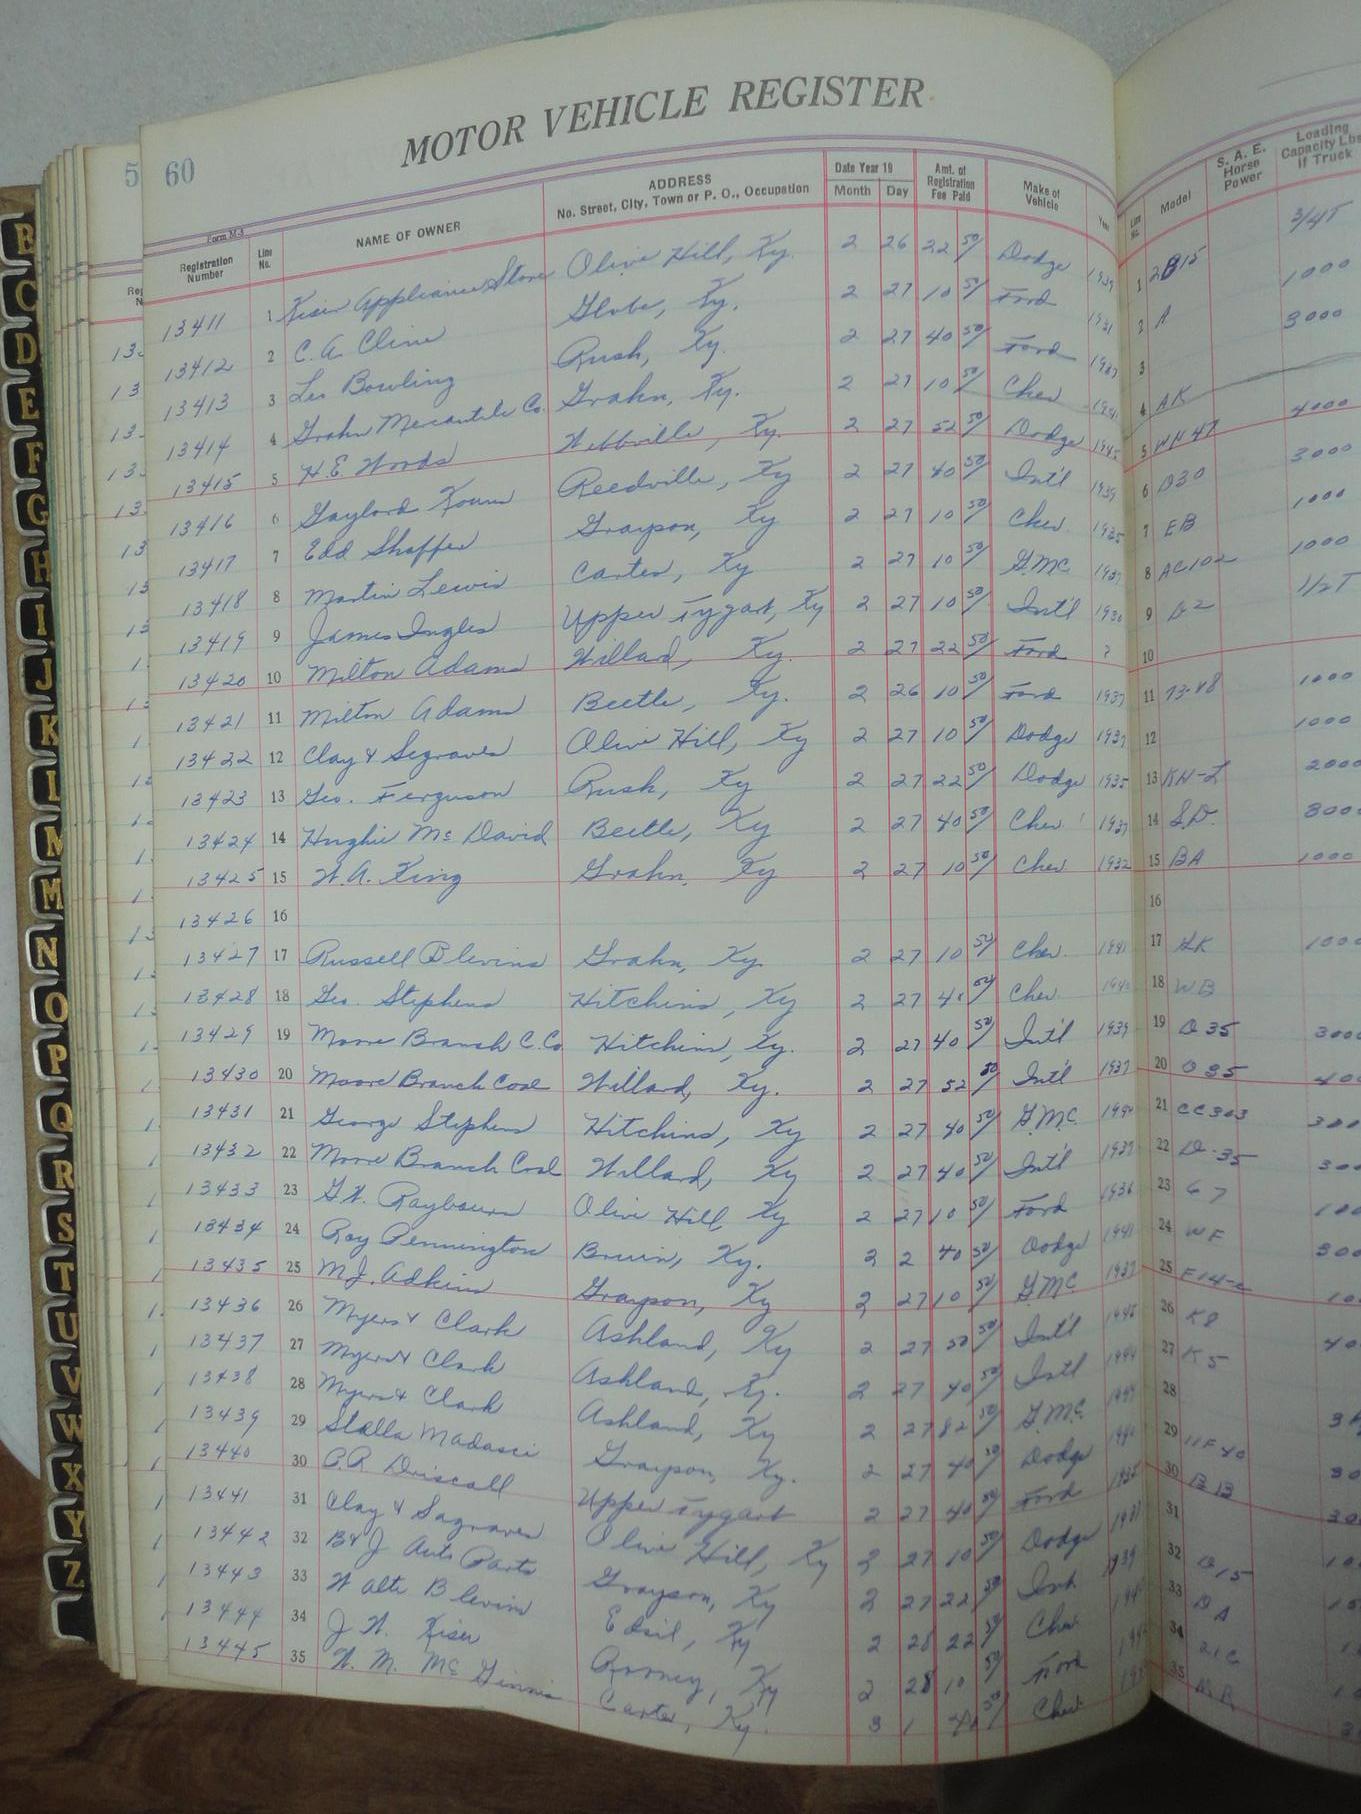 MOTOR VEHICLE REGISTER
5 60
Form M-3
Registration Number Line No. NAME OF OWNER ADDRESS No. Street, City, Town or P. O., Occupation Date Year 19 Month Day Amt. of Registration Fee Paid Make of Vehicle Year Line No. Model S. A. E. Horse Power Loading Capacity Lbs If Truck
13411 1 Kiser Appliance Store Olive Hill, Ky. 2 26 22 50/ Dodge 1939 1 2B15 3/4T
13412 2 C. A. Cline Globe, Ky. 2 27 10 50/ Ford 1931 2 A 1000
13413 3 Les Bowling Rush, Ky. 2 27 40 50/ Ford 1937 3 3000
13414 4 Grahn Mercantile Co. Grahn, Ky. 2 27 10 50/ Chev 1941 4 AK
13415 5 H. E. Woods Webbville, Ky. 2 27 52 50/ Dodge 1945 5 WH47 4000
13416 6 Gaylord Reedville, Ky 2 27 40 50/ Int'l 1939 6 D30 3000
13417 7 Edd Shaffer Grayson, Ky 2 27 10 50/ Chev 1935 7 EB 1000
13418 8 Martin Lewis Carter, Ky 2 27 10 50/ G.M.C. 1937 8 AC102 1000
13419 9 James Ingles Upper Tygart, Ky 2 27 10 50/ Int'l 1930 9 1/2T
13420 10 Milton Adams Willard, Ky. 2 27 22 50/ Ford ? 10
13421 11 Milton Adams Beetle, Ky. 2 26 10 50/ Ford 1937 11 73-48 1000
13422 12 Clay & Segraves Olive Hill, Ky 2 27 10 50/ Dodge 1937 12 1000
13423 13 Geo. Ferguson Rush, Ky 2 27 22 50/ Dodge 1935 13 KH-L 2000
13424 14 Hughie McDavid Beetle, Ky 2 27 40 50/ Chev 1937 14 S.D. 300
13425 15 W. A. King Grahn, Ky 2 27 10 50/ Chev 1932 15 BA 1000
13426 16 16
13427 17 Russell Blevins Grahn, Ky. 2 27 10 50/ Chev. 1941 17 AK 1000
13428 18 Geo. Stephens Hitchins, Ky 2 27 50/ Chev 18 WB
13429 19 Moore Branch C. Co. Hitchins, Ky. 2 27 40 50/ Int'l 1939 19 D35 3000
13430 20 Moore Branch Coal Willard, Ky. 2 27 52 50/ Int'l 1937 20 D35 400
13431 21 George Stephens Hitchins, Ky 2 27 40 50/ G.M.C. 21 CC303 300
13432 22 Moore Branch Coal Willard, Ky 2 27 40 50/ Int'l 1937 22 D-35 300
13433 23 G. W. Raybourn Olive Hill, Ky 2 27 10 50/ Ford 1936 23 67 100
13434 24 Roy Pennington Bruin, Ky. 2 2 40 50/ Dodge 1941 24 WF 300
13435 25 M. J. Adkins Grayson, Ky 2 27 10 50/ G.M.C. 1937 25 F14-c 10
13436 26 Myers & Clark Ashland, Ky 2 27 52 50/ Int'l 26 K8 40
13437 27 Myers & Clark Ashland, Ky. 2 27 40 50/ Int'l 27 K5
13438 28 Myers & Clark Ashland, Ky 2 27 82 50/ G.M.C. 28
13439 29 Stella Grayson, Ky. 2 27 40 50/ Dodge 29 30
13440 30 Driscall Upper Tygart 2 27 40 50/ Ford 1935 30 BB 30
13441 31 Clay & Sagraves Olive Hill, Ky 2 27 10 50/ Dodge 31
13442 32 B & J Auto Parts Grayson, Ky 2 27 22 50/ 1939 32 D15
13443 33 Walter Blevins Edsil, Ky 2 28 22 50/ Chev 33 DA
13444 34 J. W. Kiser Rooney, Ky 2 28 10 50/ Ford 34 21C
13445 35 W. M. McGinnis Carter, Ky. 3 1 50/ Chev 35
B
C
D
E
F
G
H
I
J
K
L
M
M
N
O
P
Q
R
S
T
U
V
W
X
Y
Z